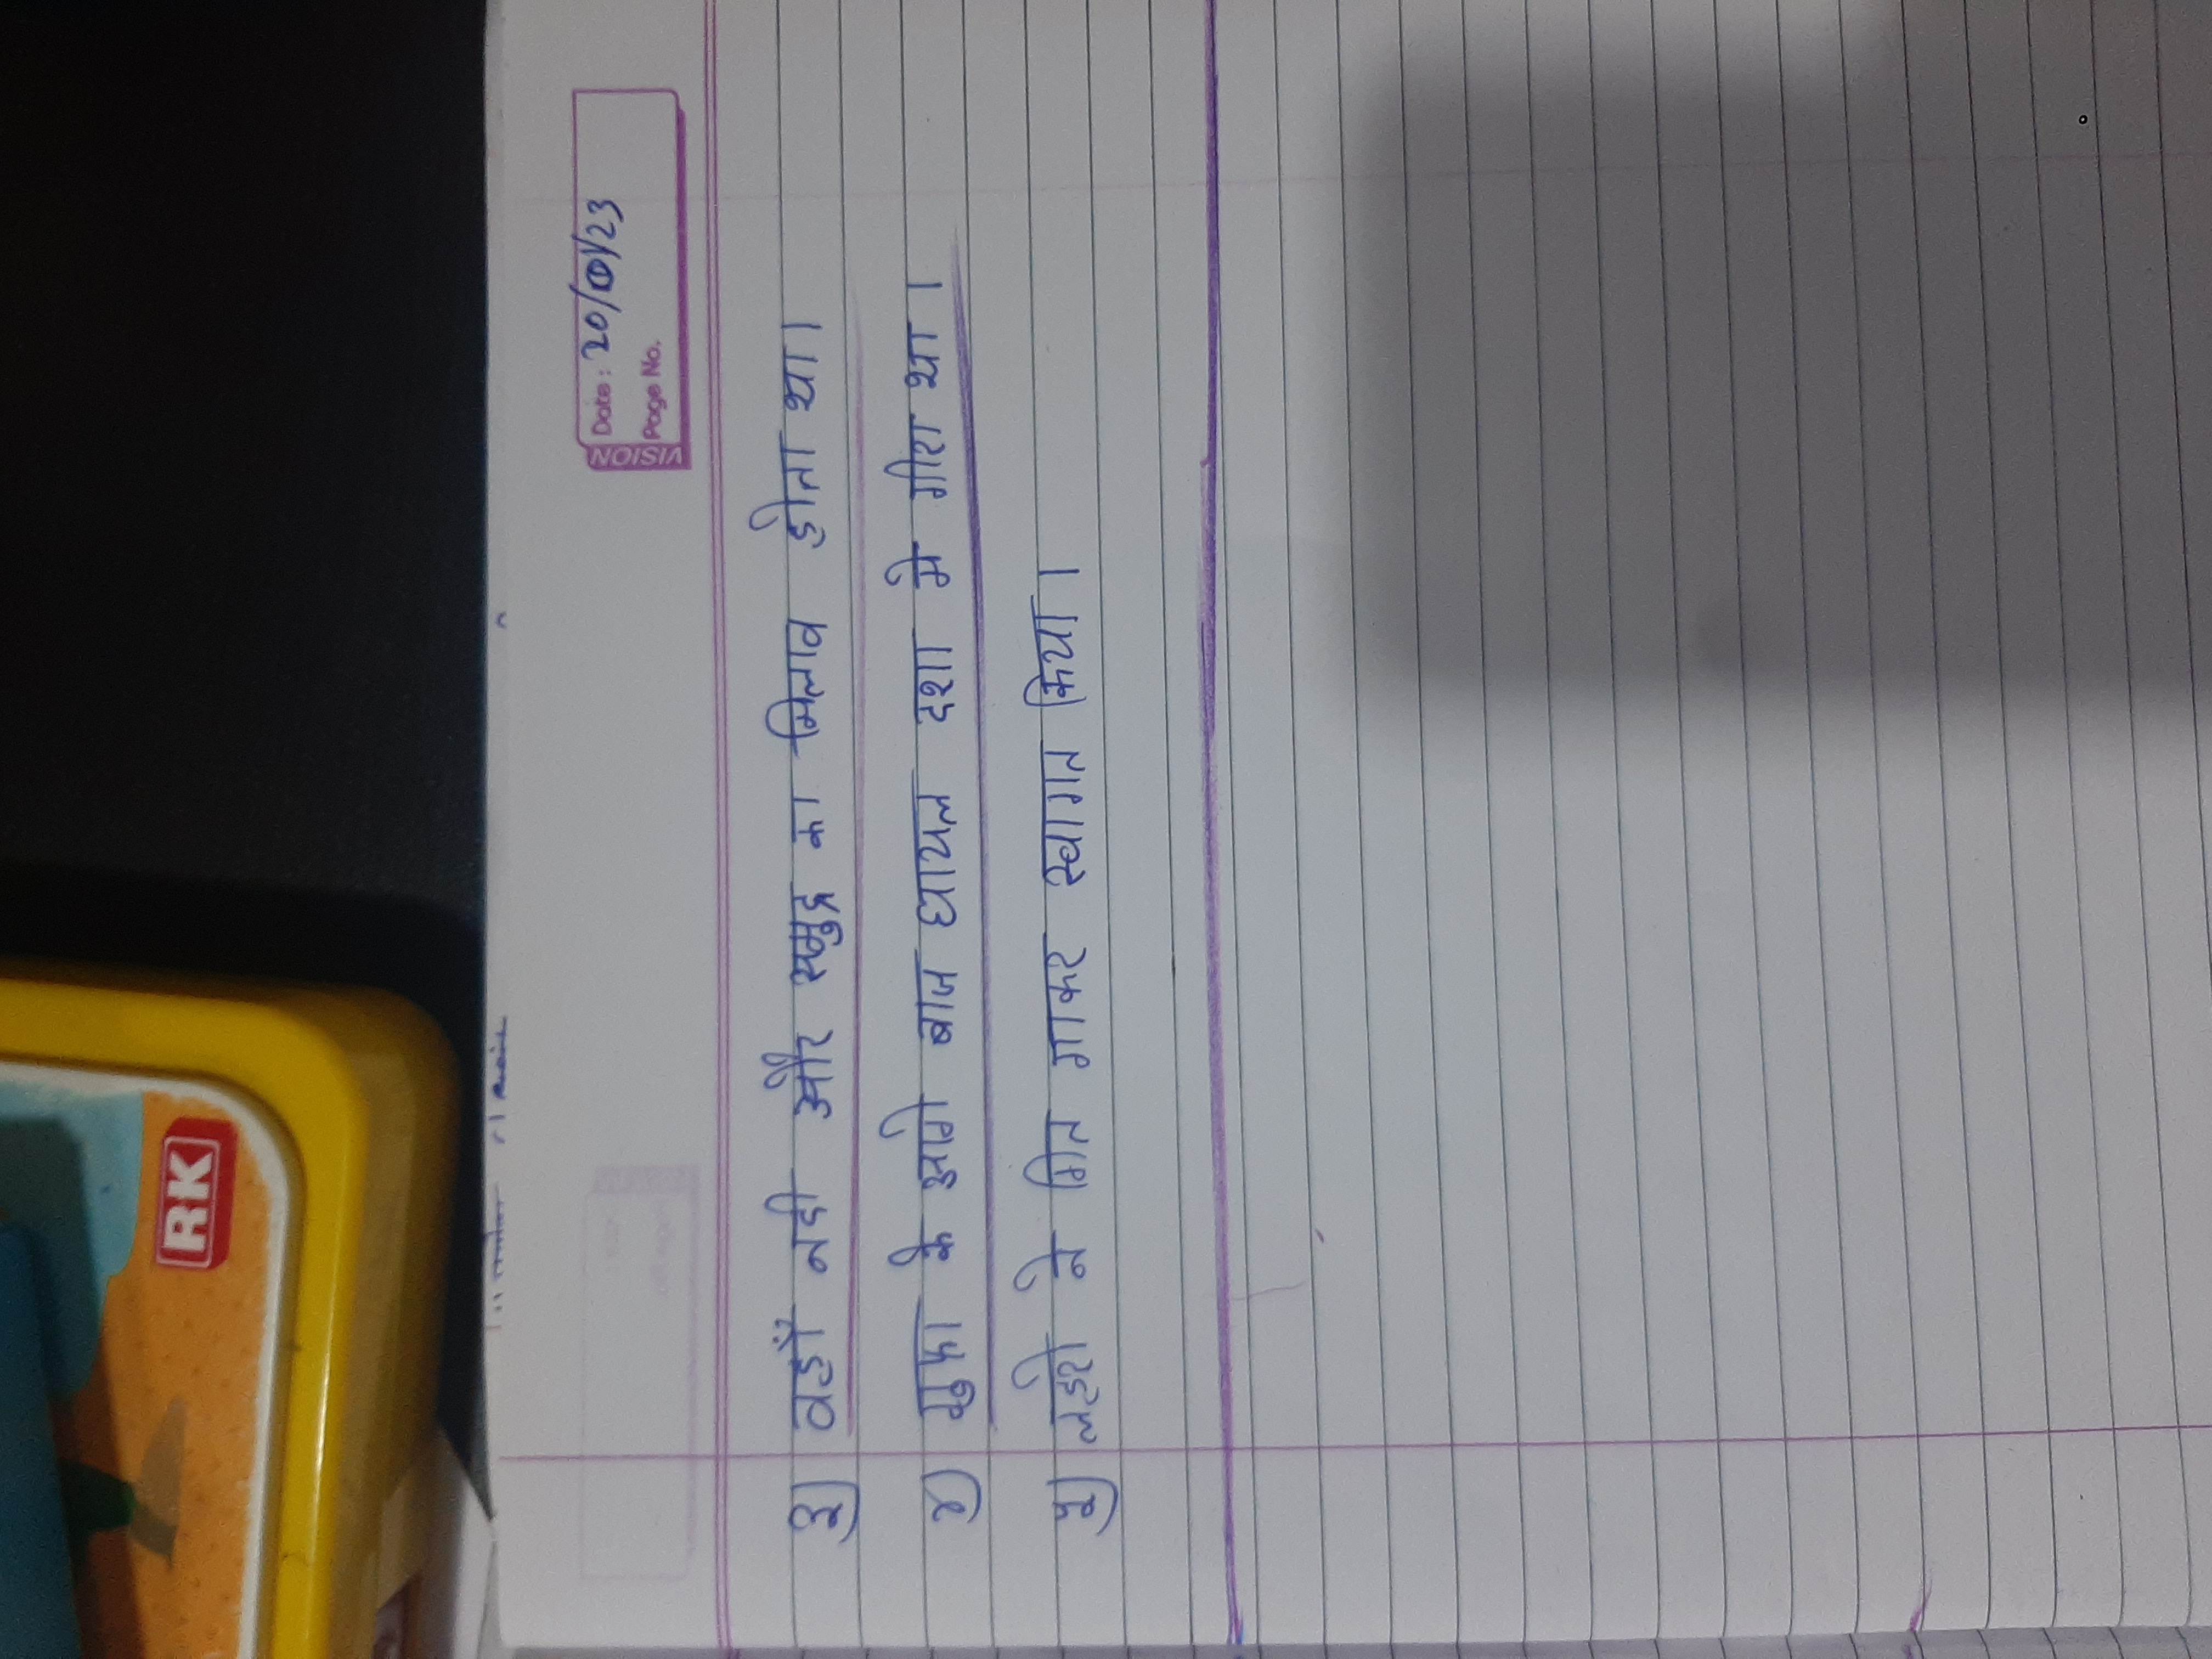 RK
VISION
Date: 20/01/23
Page No.
३) वहाँ नदी और समुद्र का मिलाव होता था।
४) गुफा के आगे बाज घायल दशा मे गीरा था।
५) लहरो ने गित गाकर स्वागत किया।